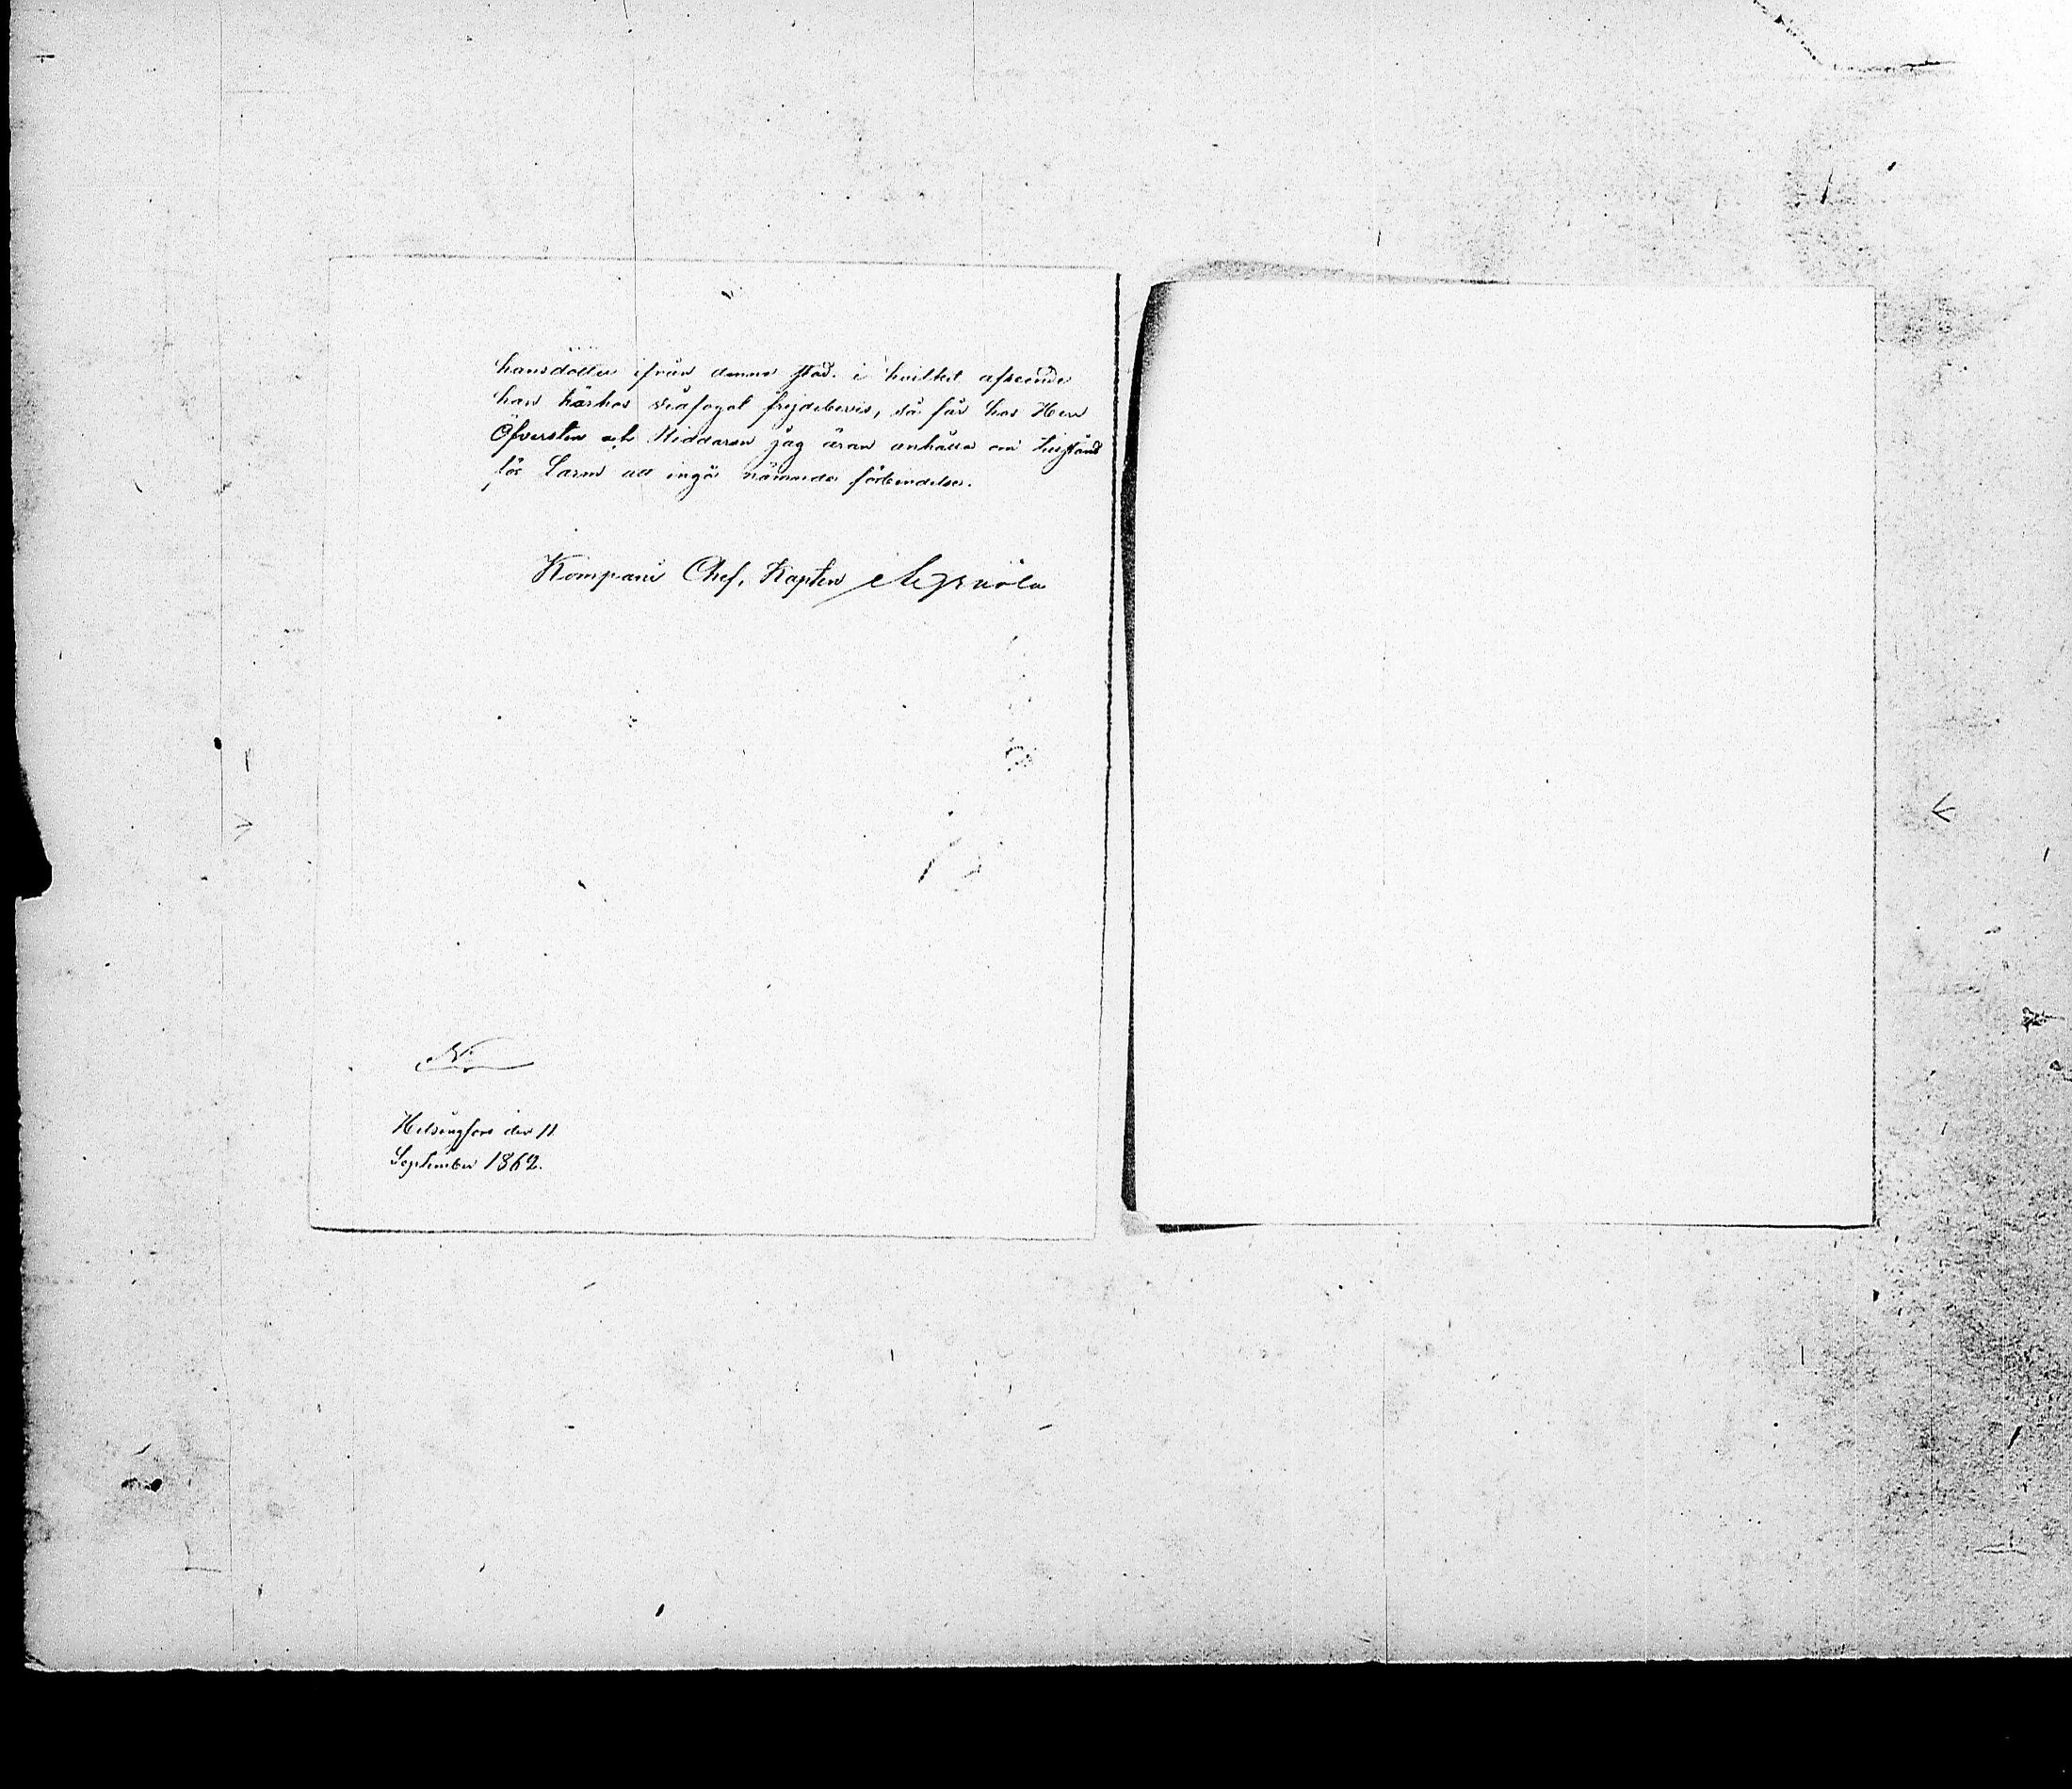 hansdotter ifrån denna stad. i hvilket afseende
han härhos vidfogat frejdebevis, så får hos Herr
Öfversten och Riddaren jag äran anhålla om tillstånd
för Larm att ingå nämnda förbindelse.
Kompani Chef, Kapten
No
Helsingfors den 11
September 1862.